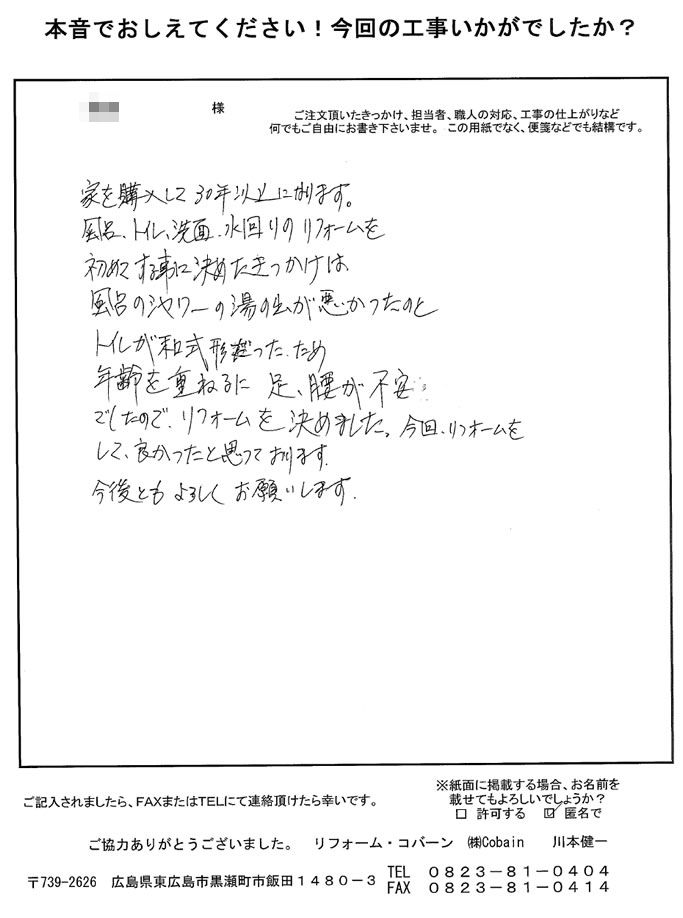 本音でおしえてください！今回の工事いかがでしたか？
様
ご注文頂いたきっかけ、担当者、職人の対応、工事の仕上がりなど
何でもご自由にお書き下さいませ。この用紙でなく、便箋などでも結構です。
家を購入して30年以上になります。
風呂、トイレ、洗面、水回りのリフォームを
初めてする事に決めたきっかけは
風呂のシャワーの湯の出が悪かったのと
トイレが和式形だった、ため
年齢を重ねるに 足、腰が不安
でしたので、リフォームを決めました。今回、リフォームを
して、良かったと思っております。
今後ともよろしくお願いします。
ご記入されましたら、FAXまたはTELにて連絡頂けたら幸いです。
※紙面に掲載する場合、お名前を
載せてもよろしいでしょうか？
□ 許可する ☑ 匿名で
ご協力ありがとうございました。 リフォーム・コバーン ㈱Cobain 川本健一
〒739-2626 広島県東広島市黒瀬町市飯田１４８０－３
TEL ０８２３－８１－０４０４
FAX ０８２３－８１－０４１４